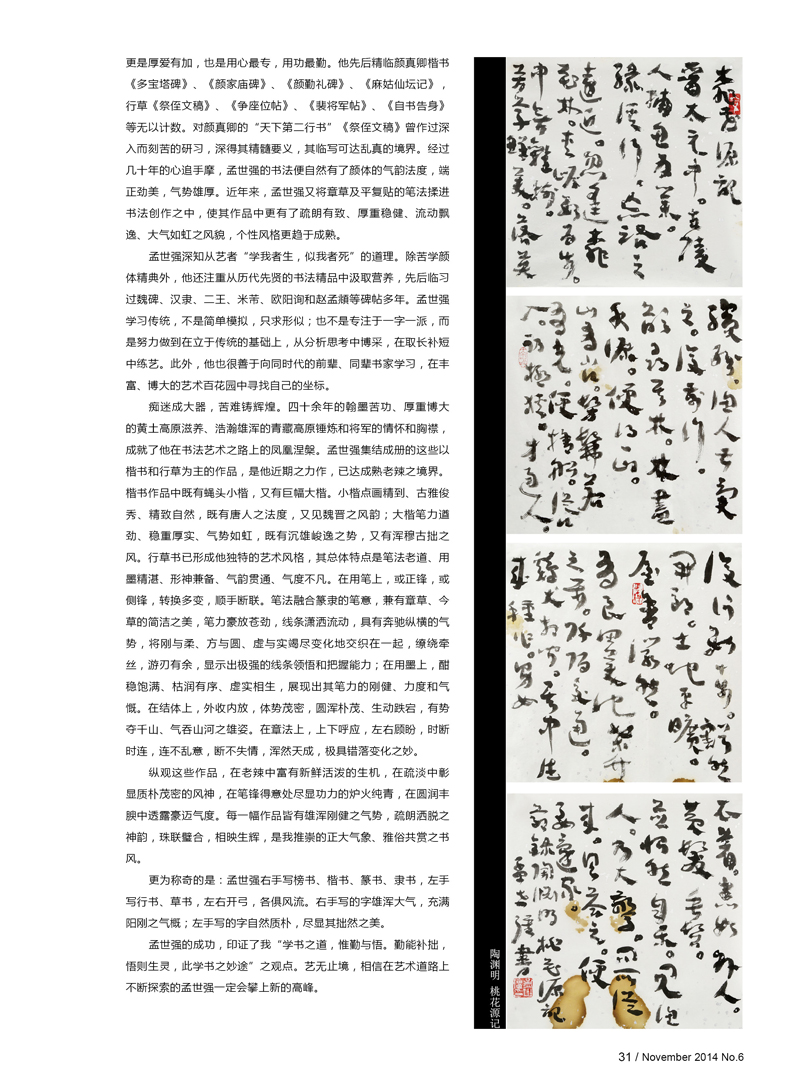 更是厚爱有加，也是用心最专，用功最勤。他先后精临颜真卿楷书
《多宝塔碑》、《颜家庙碑》、《颜勤礼碑》、《麻姑仙坛记》，
行草《祭侄文稿》、《争座位帖》、《裴将军帖》、《自书告身》
等无以计数。对颜真卿的“天下第二行书”《祭侄文稿》曾作过深
入而刻苦的研习，深得其精髓要义，其临写可达乱真的境界。经过
几十年的心追手摩，孟世强的书法便自然有了颜体的气韵法度，端
正劲美，气势雄厚。近年来，孟世强又将章草及平复贴的笔法揉进
书法创作之中，使其作品中更有了疏朗有致、厚重稳健、流动飘
逸、大气如虹之风貌，个性风格更趋于成熟。
孟世强深知从艺者“学我者生，似我者死”的道理。除苦学颜
体精典外，他还注重从历代先贤的书法精品中汲取营养，先后临习
过魏碑、汉隶、二王、米芾、欧阳询和赵孟頫等碑帖多年。孟世强
学习传统，不是简单模拟，只求形似；也不是专注于一字一派，而
是努力做到在立于传统的基础上，从分析思考中博采，在取长补短
中练艺。此外，他也很善于向同时代的前辈、同辈书家学习，在丰
富、博大的艺术百花园中寻找自己的坐标。
痴迷成大器，苦难铸辉煌。四十余年的翰墨苦功、厚重博大
的黄土高原滋养、浩瀚雄浑的青藏高原锤炼和将军的情怀和胸襟，
成就了他在书法艺术之路上的凤凰涅槃。孟世强集结成册的这些以
楷书和行草为主的作品，是他近期之力作，已达成熟老辣之境界。
楷书作品中既有蝇头小楷，又有巨幅大楷。小楷点画精到、古雅俊
秀、精致自然，既有唐人之法度，又见魏晋之风韵；大楷笔力遒
劲、稳重厚实、气势如虹，既有沉雄峻逸之势，又有浑穆古拙之
风。行草书已形成他独特的艺术风格，其总体特点是笔法老道、用
墨精湛、形神兼备、气韵贯通、气度不凡。在用笔上，或正锋，或
侧锋，转换多变，顺手断联。笔法融合篆隶的笔意，兼有章草、今
草的简洁之美，笔力豪放苍劲，线条潇洒流动，具有奔驰纵横的气
势，将刚与柔、方与圆、虚与实竭尽变化地交织在一起，缭绕牵
丝，游刃有余，显示出极强的线条领悟和把握能力；在用墨上，酣
稳饱满、枯润有序、虚实相生，展现出其笔力的刚健、力度和气
慨。在结体上，外收内放，体势茂密，圆浑朴茂、生动跌宕，有势
夺千山、气吞山河之雄姿。在章法上，上下呼应，左右顾盼，时断
时连，连不乱意，断不失情，浑然天成，极具错落变化之妙。
纵观这些作品，在老辣中富有新鲜活泼的生机，在疏淡中彰
显质朴茂密的风神，在笔锋得意处尽显功力的炉火纯青，在圆润丰
腴中透露豪迈气度。每一幅作品皆有雄浑刚健之气势，疏朗洒脱之
神韵，珠联璧合，相映生辉，是我推崇的正大气象、雅俗共赏之书
风。
更为称奇的是：孟世强右手写榜书、楷书、篆书、隶书，左手
写行书、草书，左右开弓，各俱风流。右手写的字雄浑大气，充满
阳刚之气慨；左手写的字自然质朴，尽显其拙然之美。
孟世强的成功，印证了我“学书之道，惟勤与悟。勤能补拙，
悟则生灵，此学书之妙途”之观点。艺无止境，相信在艺术道路上
不断探索的孟世强一定会攀上新的高峰。
桃花源記
晉太元中。武陵
人捕魚為業。
緣溪行。忘路之
遠近。忽逢桃
花林。夾岸數百步。
中無雜樹。
芳草鮮美。落英
繽紛。漁人甚異
之。復前行。
欲窮其林。林盡
水源。便得一山。
山有小口。髣髴若
有光。便捨船。從口
入。初極狹。才通人。
復行數十步。豁然
開朗。土地平曠。
屋舍儼然。
有良田美池桑竹
之屬。阡陌交通。
雞犬相聞。其中往
來種作。男女
衣著。悉如外人。
黃髮垂髫。
並怡然自樂。見漁
人。乃大驚。問所從
來。具答之。便
要還家。
節錄陶淵明桃花源記
孟世強書
陶渊明 桃花源记
31 / November 2014 No.6